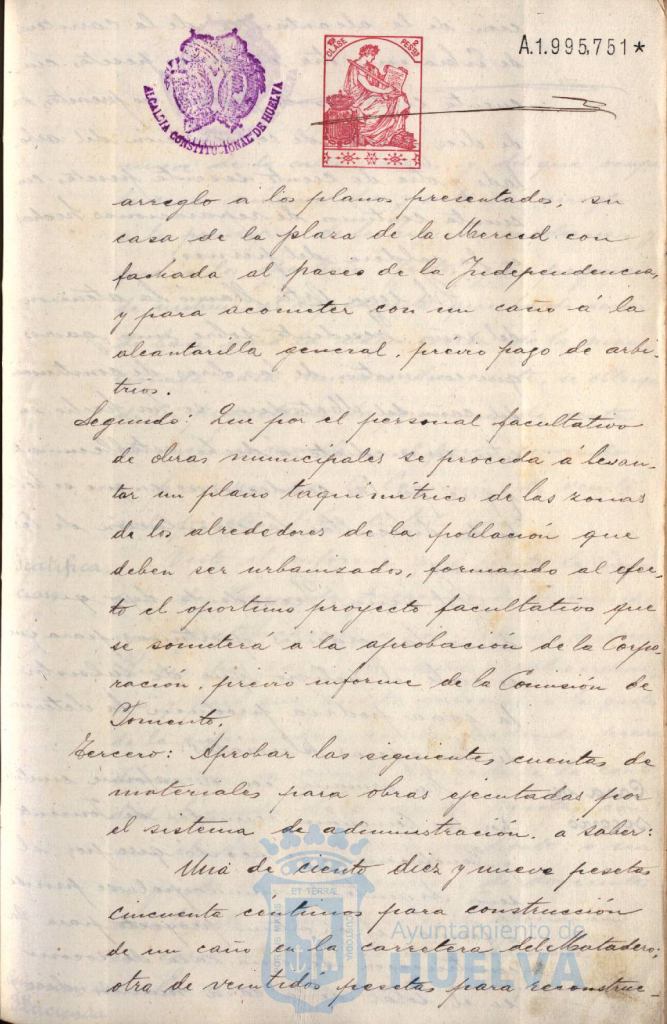 ALCALDIA CONSTITUCIONAL DE HUELVA
CLASE
PESETAS
A.1.995,751*
arreglo a los planos presentados, su
casa de la plaza de la Merced con
fachada al paseo de la Independencia,
y para acometer con un caño á la
alcantarilla general, previo pago de arbi-
trios.
Segundo: Que por el personal facultativo
de obras municipales se proceda á levan-
tar un plano taquimítrico de las zonas
de los alrededores de la población que
deben ser urbanizados, formando al efec-
to el oportuno proyecto facultativo que
se someterá a la aprobación de la Corpo-
ración, previo informe de la Comisión de
Fomento.
Tercero: Aprobar las siguientes cuentas de
materiales para obras ejecutadas por
el sistema de administración, a saber:
Una de ciento diez y nueve pesetas
cincuenta céntimos para construcción
de un caño en la carretera del Matadero;
otra de veintidos pesetas para reconstruc-
ET TERRAE
Ayuntamiento de
HUELVA